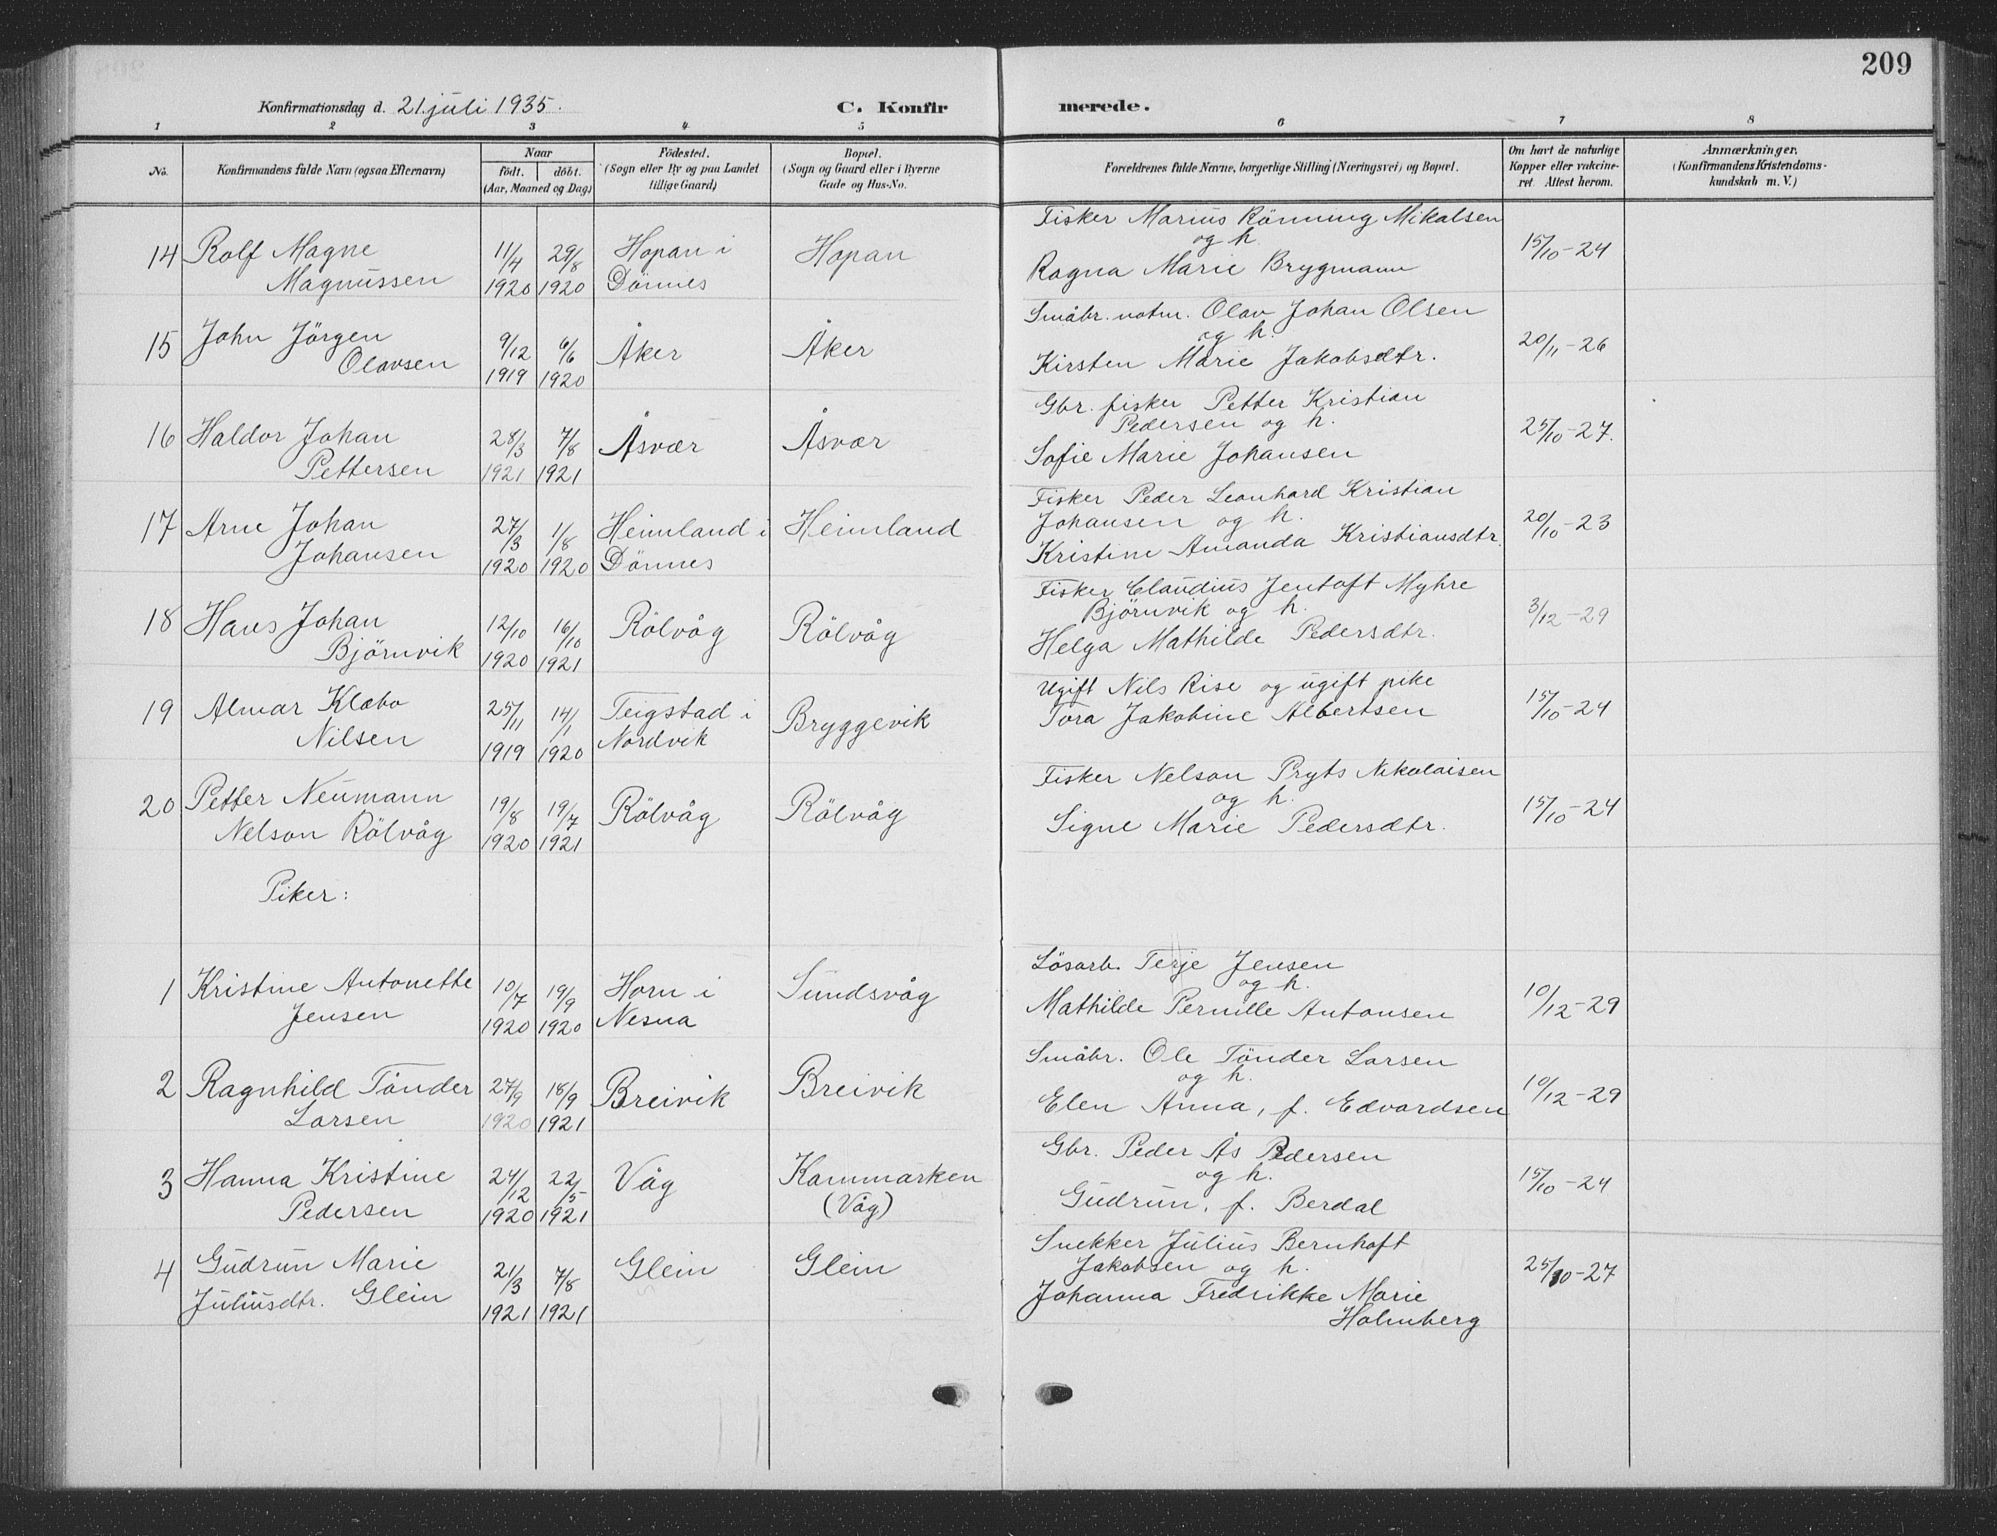 209
Konfirmationsdag d. 21. juli 1935.
C. Konfirmerede.
1 2 3 4 5 6 7 8
No.
Konfirmandens fulde Navn (ogsaa Efternavn)
Naar
födt. döbt.
(Aar, Maaned og Dag)
Födested.
(Sogn eller By og paa Landet
tillige Gaard)
Bopæl.
(Sogn og Gaard eller i Byerne
Gade og Hus-No.
Forældrenes fulde Navne, borgerlige Stilling (Næringsvei) og Bopæl.
Om havt de naturlige
Kopper eller vakcine-
ret. Attest herom.
Anmærkninger.
(Konfirmandens Kristendoms-
kundskab m. V.)
14 Rolf Magne
Magnussen
11/4 1920
29/8 1920
Hopan i
Dönnes
Hopan
Fisker Marius Rönning Mikalsen
og h.
Ragna Marie Brygmann
15/10-24
15 John Jörgen
Olavsen
9/12 1919
6/6 1920
Åker
Åker
Småbr. notm. Olav Johan Olsen
og h.
Kirsten Marie Jakobsdtr.
20/11-26
16 Haldor Johan
Pettersen
28/3 1921
7/8 1921
Åsvær
Åsvær
Gbr. fisker Petter Kristian
Pedersen og h.
Sofie Marie Johansen
25/10-27.
17 Arne Johan
Johansen
27/3 1920
1/8 1920
Heimland i
Dönnes
Heimland
Fisker Peder Leonhard Kristian
Johansen og h.
Kristine Amanda Kristiansdtr.
20/10-23
18 Hans Johan
Björnvik
12/10 1920
16/10 1921
Rölvåg
Rölvåg
Fisker Claudius Jentoft Myhre
Björnvik og h.
Helga Mathilde Pedersdtr.
3/12-29
19 Almar Klæbo
Nilsen
25/11 1919
14/1 1920
Teigstad i
Nordvik
Bryggevik
Ugift Nils Rise og ugift pike
Tora Jakobine Albertsen
15/10-24
20 Petter Neumann
Nelson Rölvåg
19/8 1920
19/7 1921
Rölvåg
Rölvåg
Fisker Nelson Pryts Nikolaisen
og h.
Signe Marie Pedersdtr.
15/10-24
Piker:
1 Kristine Antonette
Jensen
10/7 1920
19/9 1920
Horn i
Nesna
Sundsvåg
Lösarb. Terje Jensen
og h.
Mathilde Pernille Antonsen
10/12-29
2 Ragnhild Tönder
Larsen
27/9 1920
18/9 1921
Breivik
Breivik
Småbr. Ole Tönder Larsen
og h.
Elen Anna, f. Edvardsen
10/12-29
3 Hanna Kristine
Pedersen
24/12 1920
22/5 1921
Våg
Kammarken
(Våg)
Gbr. Peder Ås Pedersen
og h.
Gudrun, f. Berdal
15/10-24
4 Gudrun Marie
Juliusdtr. Glein
21/3 1921
7/8 1921
Glein
Glein
Snekker Julius Bernhoft
Jakobsen og h.
Johanna Fredrikke Marie
Holmberg
25/10-27